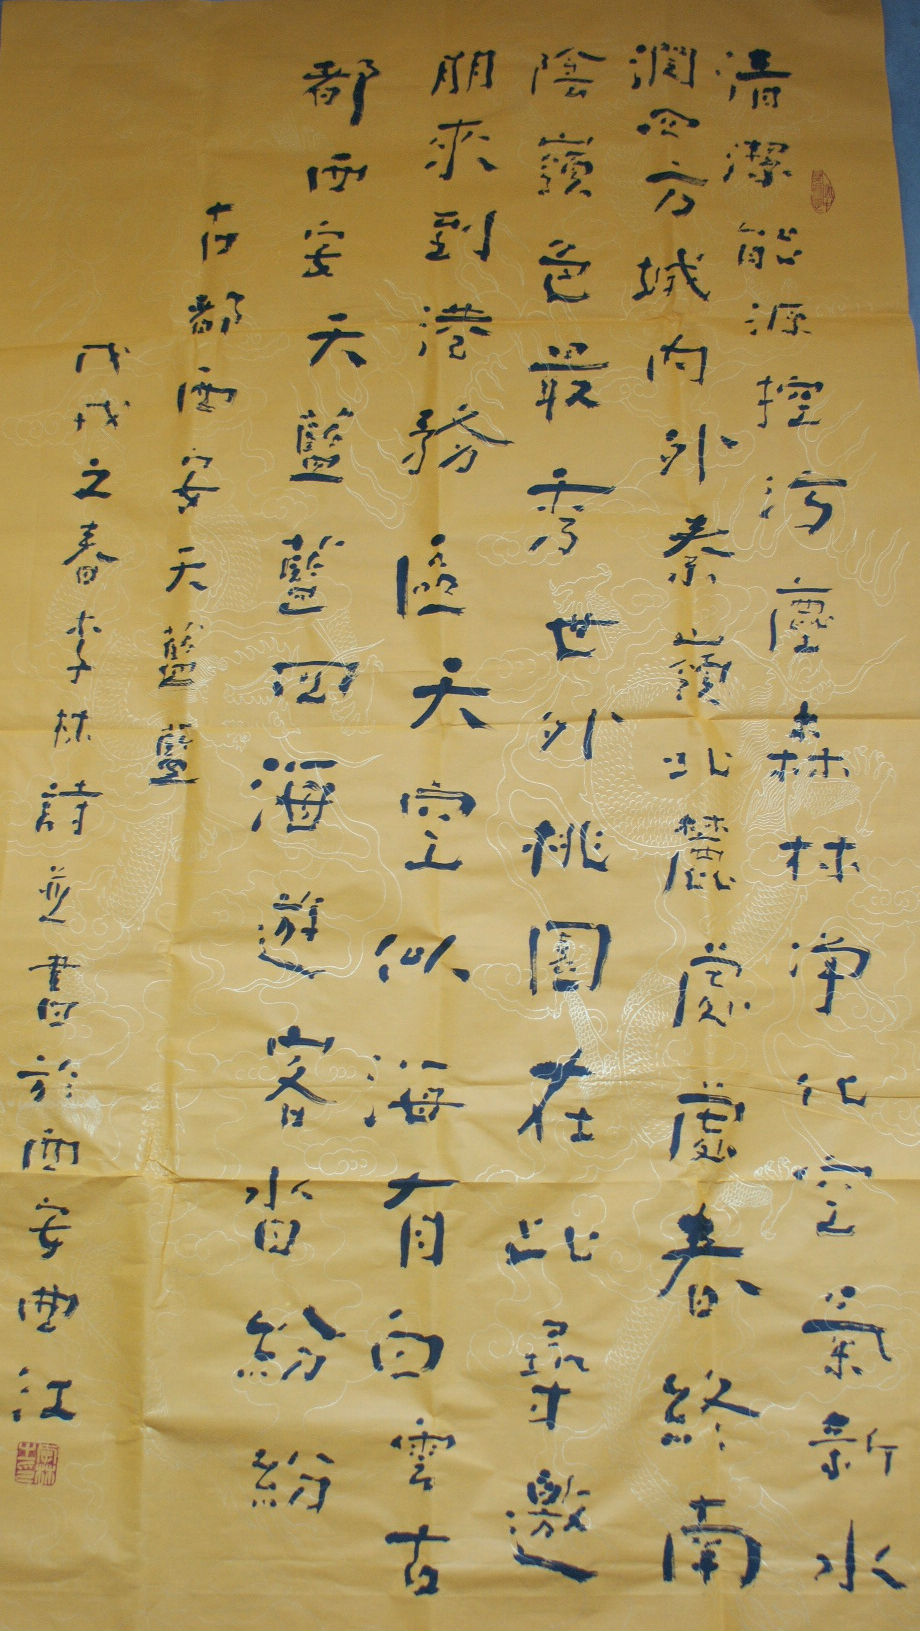 清潔能源控污塵森林淨化空氣新水
潤四方城內外秦嶺北麓處處春終南
陰嶺色最秀世外桃園在此尋邀
朋來到港務區天空似海有白雲古
都西安天藍藍四海遊客沓紛紛
古都西安天藍藍
戊戌之春李林詩並書於西安曲江